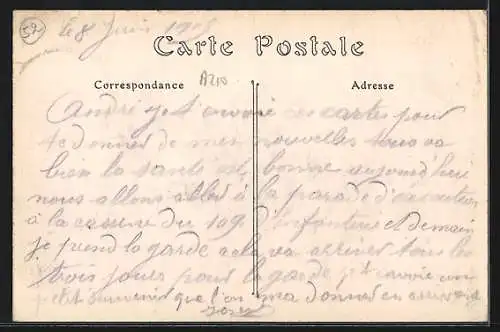 52
Le 8 Juin 19
Carte Postale
Correspondance
A210
Adresse
André je t'envoie ces cartes pour
te donner de mes nouvelles tous va
bien la santé est bonne aujourd'hui
nous allons aller à la parade d'éxecution
à la caserne du 109 d'infanterie et Demain
je prend la garde a cela va arriver tous les
trois jours pour la garde je t'envoie un
petit souvenir que l'on ma donner en